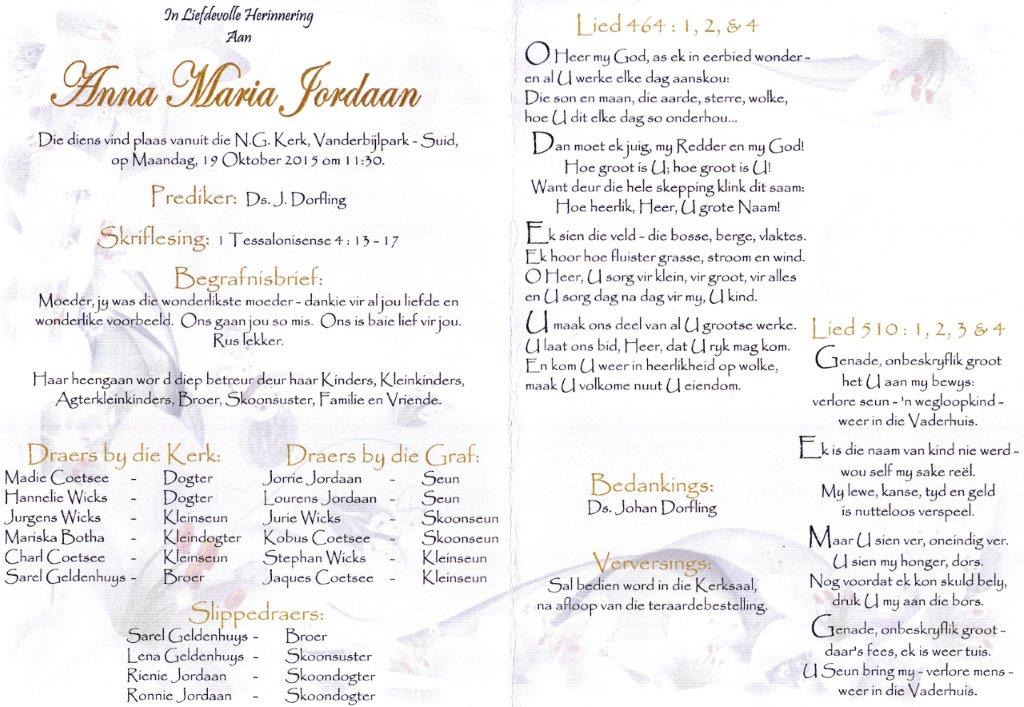 In Liefdevolle Herinnering
Aan
Anna Maria Jordaan
Die diens vind plaas vanuit die N.G. Kerk, Vanderbijlpark - Suid,
op Maandag, 19 Oktober 2015 om 11:30.
Prediker: Ds. J. Dorfling
Skriflesing: 1 Tessalonisense 4 : 13 - 17
Begrafnisbrief:
Moeder, jy was die wonderlikste moeder - dankie vir al jou liefde en
wonderlike voorbeeld. Ons gaan jou so mis. Ons is baie lief vir jou.
Rus lekker.
Haar heengaan wor d diep betreur deur haar Kinders, Kleinkinders,
Agterkleinkinders, Broer, Skoonsuster, Familie en Vriende.
Draers by die Kerk:
Madie Coetsee - Dogter
Hannelie Wicks - Dogter
Jurgens Wicks - Kleinseun
Mariska Botha - Kleindogter
Charl Coetsee - Kleinseun
Sarel Geldenhuys - Broer
Draers by die Graf:
Jorrie Jordaan - Seun
Lourens Jordaan - Seun
Jurie Wicks - Skoonseun
Kobus Coetsee - Skoonseun
Stephan Wicks - Kleinseun
Jaques Coetsee - Kleinseun
Slippedraers:
Sarel Geldenhuys - Broer
Lena Geldenhuys - Skoonsuster
Rienie Jordaan - Skoondogter
Ronnie Jordaan - Skoondogter
Lied 464 : 1, 2, & 4
O Heer my God, as ek in eerbied wonder -
en al U werke elke dag aanskou:
Die son en maan, die aarde, sterre, wolke,
hoe U dit elke dag so onderhou...
Dan moet ek juig, my Redder en my God!
Hoe groot is U; hoe groot is U!
Want deur die hele skepping klink dit saam:
Hoe heerlik, Heer, U grote Naam!
Ek sien die veld - die bosse, berge, vlaktes.
Ek hoor hoe fluister grasse, stroom en wind.
O Heer, U sorg vir klein, vir groot, vir alles
en U sorg dag na dag vir my, U kind.
U maak ons deel van al U grootse werke.
U laat ons bid, Heer, dat U ryk mag kom.
En kom U weer in heerlikheid op wolke,
maak U volkome nuut U eiendom.
Bedankings:
Ds. Johan Dorfling
Verversings:
Sal bedien word in die Kerksaal,
na afloop van die teraardebestelling.
Lied 510 : 1, 2, 3 & 4
Genade, onbeskryflik groot
het U aan my bewys:
verlore seun - 'n wegloopkind -
weer in die Vaderhuis.
Ek is die naam van kind nie werd -
wou self my sake reël.
My lewe, kanse, tyd en geld
is nutteloos verspeel.
Maar U sien ver, oneindig ver.
U sien my honger, dors.
Nog voordat ek kon skuld bely,
druk U my aan die bors.
Genade, onbeskryflik groot -
daar's fees, ek is weer tuis.
U Seun bring my - verlore mens -
weer in die Vaderhuis.